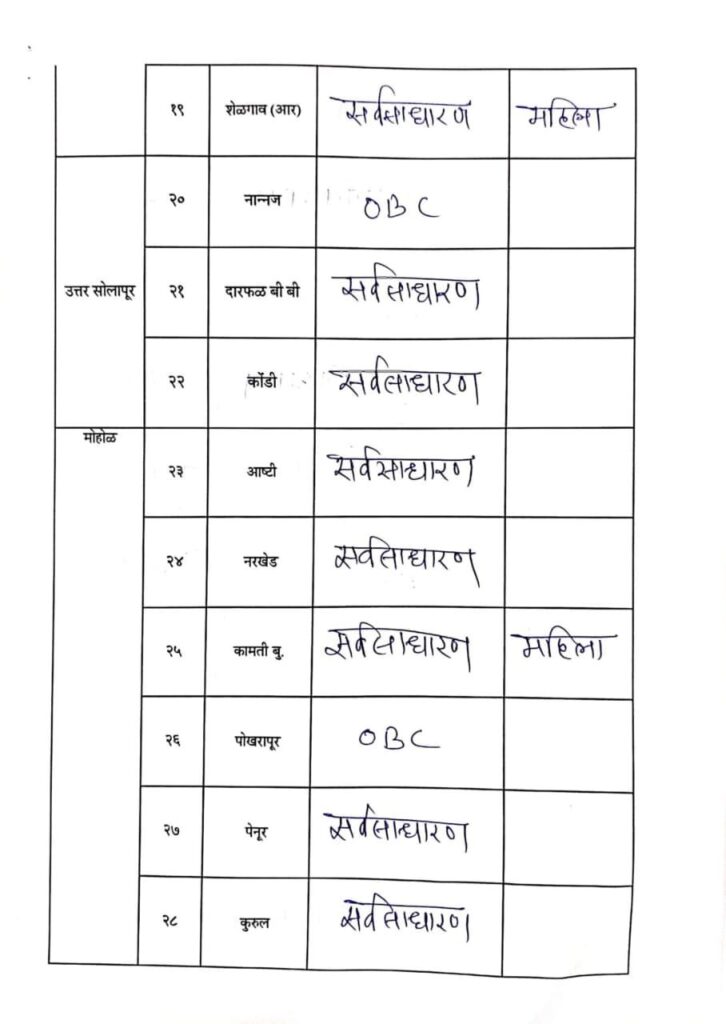 १९ शेळगाव (आर) सर्वसाधारण महिला
२० नान्नज OBC
उत्तर सोलापूर २१ दारफळ बी बी सर्वसाधारण
२२ कोंडी सर्वसाधारण
मोहोळ
२३ आष्टी सर्वसाधारण
२४ नरखेड सर्वसाधारण
२५ कामती बु. सर्वसाधारण महिला
२६ पोखरापूर OBC
२७ पेनूर सर्वसाधारण
२८ कुरुल सर्वसाधारण